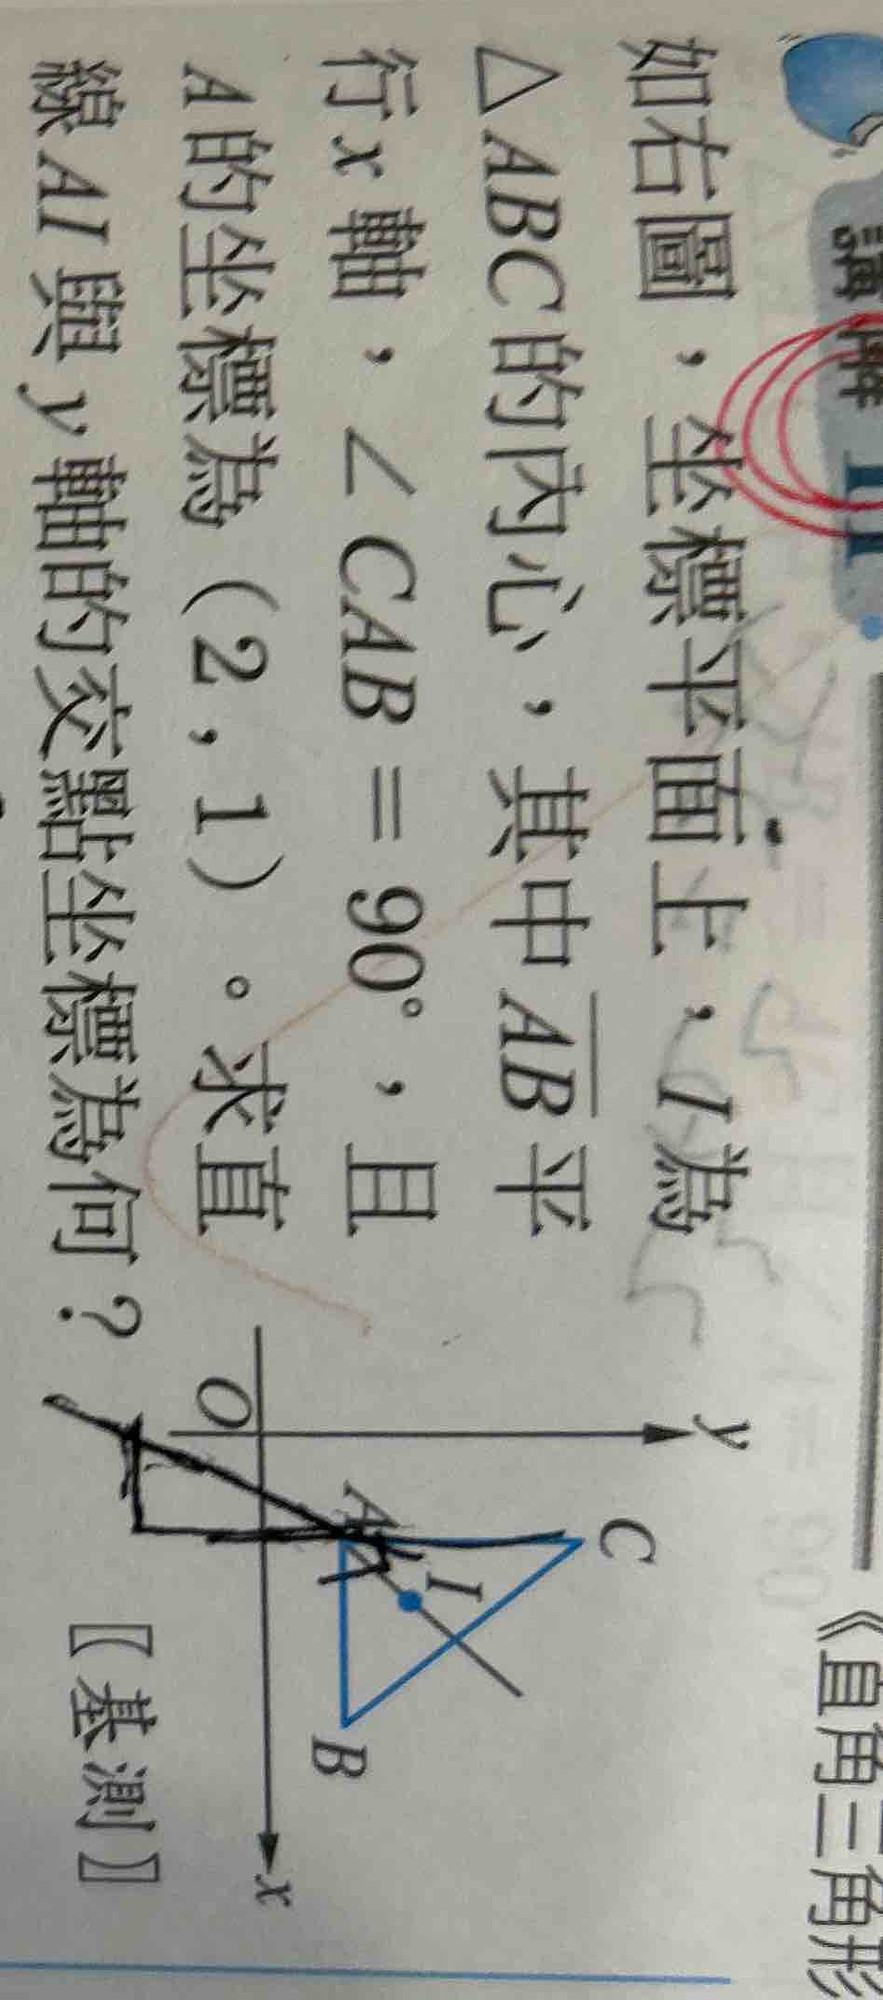 《直角三角形
如右圖，坐標平面上，I為
△ABC的內心，其中AB平
行x軸，∠CAB=90°，且
A的坐標為（2，1）。求直
線AI與y軸的交點坐標為何？
〖基測〗
y
C
A
I
B
O
x